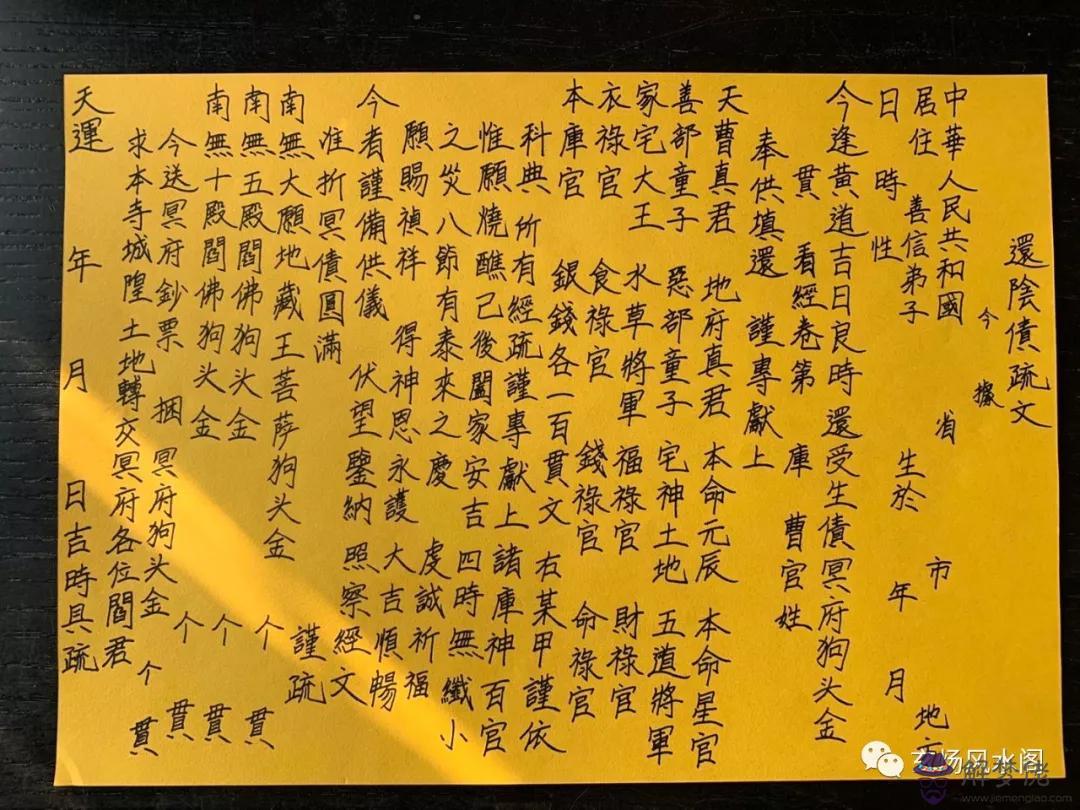 還陰債疏文
今據
中華人民共和國 省 市 地
居住 善信弟子 生於 年 月
日 時 性
今逢黄道吉日良時 還受生債冥府狗头金
貫 看經卷第 庫 曹官姓
奉供填還 謹專獻上
天曹真君 地府真君 本命元辰 本命星官
善部童子 惡部童子 宅神土地 五道將軍
家宅大王 水草將軍 福祿官 財祿官
衣祿官 食祿官 錢祿官 命祿官
本庫官 銀錢各一百貫文 右某甲謹依
科典所有經疏謹專獻上諸庫神百官
惟願燒醮已後闔家安吉四時無纖小
之災八節有泰來之慶 虔誠祈福
願賜禎祥 得神恩永護 大吉順暢
今者謹備供儀 伏望鑒納 照察經文
准折冥債圓滿 謹疏
南無大願地藏王菩萨狗头金 个 貫
南無五殿閻佛狗头金 个 貫
南無十殿閻佛狗头金 个 貫
今送冥府鈔票 捆冥府狗头金 个 貫
求本寺城隍土地轉交冥府各位閻君
天運 年 月 日吉時具疏
风水阁
解梦佬
www.jiemenglao.com